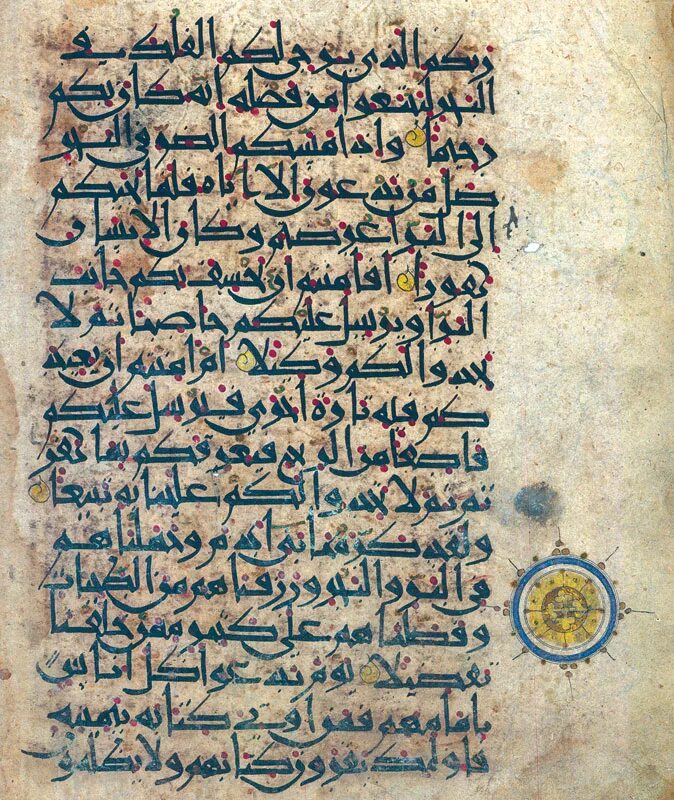 ربكم الذي يزجي لكم الفلك في
البحر لتبتغوا من فضله انه كان بكم
رحيما واذا مسكم الضر في البحر
ضل من تدعون الا اياه فلما نجيكم
الى البر اعرضتم وكان الانسان
كفورا افامنتم ان يخسف بكم جانب
البر او يرسل عليكم حاصبا ثم لا
تجدوا لكم وكيلا ام امنتم ان يعيد
كم فيه تارة اخرى فيرسل عليكم
قاصفا من الريح فيغرقكم بما كفر
تم ثم لا تجدوا لكم علينا به تبيعا
ولقد كرمنا بني ادم وحملناهم
في البر والبحر ورزقناهم من الطيبات
وفضلناهم على كثير ممن خلقنا
تفضيلا يوم ندعوا كل اناس
بامامهم فمن اوتي كتابه بيمينه
فاولئك يقرون كتابهم ولا يظلمون